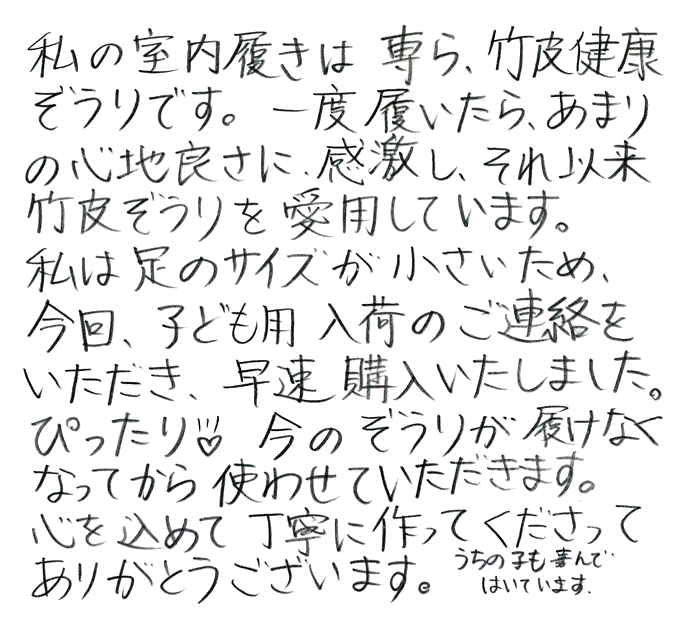 私の室内履きは 専ら、竹皮健康
ぞうりです。 一度履いたら、あまり
の心地良さに、感激し、それ以来
竹皮ぞうりを愛用しています。
私は足のサイズが小さいため、
今回、子ども用 入荷のご連絡を
いただき、早速購入いたしました。
ぴったり♡ 今のぞうりが履けなく
なってから使わせていただきます。
心を込めて丁寧に作ってくださって
ありがとうございます。
うちの子も喜んで
はいています。